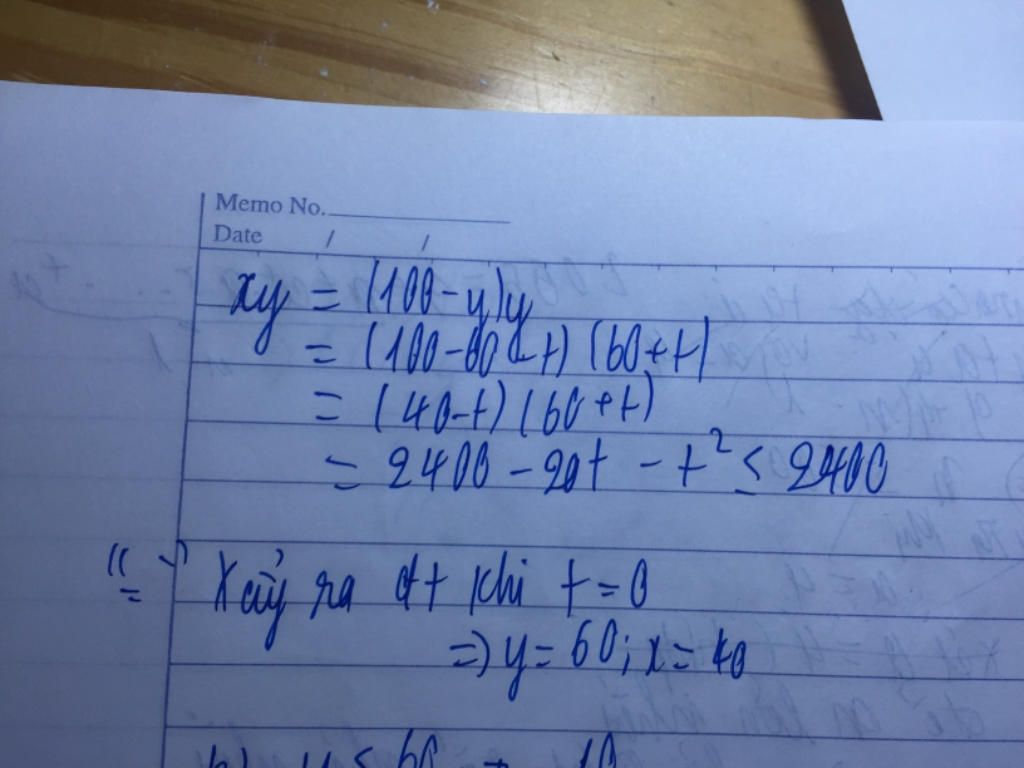 Memo No.
Date / /
xy = (100-y)y
= (100-60-t) (60+t)
= (40-t) (60+t)
= 2400 - 20t - t² ≤ 2400
"=" Xảy ra đt khi t=0
=> y = 60; x = 40